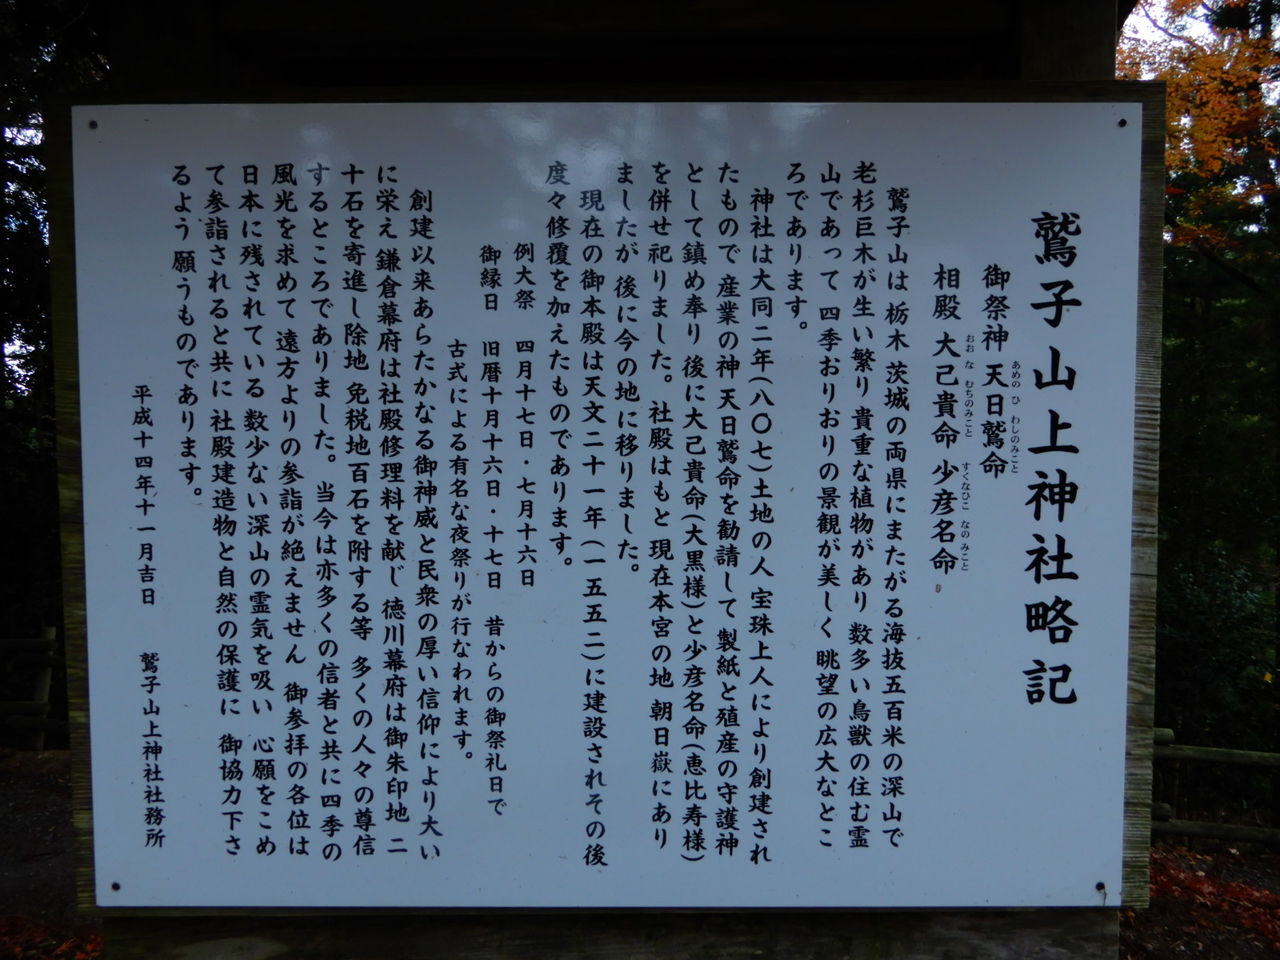 鷲子山上神社略記
御祭神 天日鷲命
あめのひわしのみこと
相殿 大己貴命 少彦名命
おおなむちのみこと すくなひこなのみこと
鷲子山は 栃木 茨城の両県にまたがる海抜五百米の深山で
老杉巨木が生い繁り 貴重な植物があり 数多い鳥獣の住む霊
山であって 四季おりおりの景観が美しく 眺望の広大なとこ
ろであります。
神社は大同二年(八〇七)土地の人 宝珠上人により創建され
たもので 産業の神 天日鷲命を勧請して 製紙と殖産の守護神
として鎮め奉り 後に大己貴命(大黒様)と少彦名命(恵比寿様)
を併せ祀りました。社殿はもと 現在本宮の地 朝日嶽にあり
ましたが 後に今の地に移りました。
現在の御本殿は天文二十一年(一五五二)に建設されその後
度々修覆を加えたものであります。
例大祭 四月十七日・七月十六日
御縁日 旧暦十月十六日・十七日 昔からの御祭礼日で
古式による有名な夜祭りが行なわれます。
創建以来あらたかなる御神威と民衆の厚い信仰により大い
に栄え 鎌倉幕府は社殿修理料を献じ 徳川幕府は御朱印地 二
十石を寄進し除地 免税地百石を附する等 多くの人々の尊信
するところでありました。当今は亦多くの信者と共に四季の
風光を求めて 遠方よりの参詣が絶えません 御参拝の各位は
日本に残されている 数少ない深山の霊気を吸い 心願をこめ
て参詣されると共に 社殿建造物と自然の保護に 御協力下さ
るよう 願うものであります。
平成十四年十一月吉日 鷲子山上神社社務所